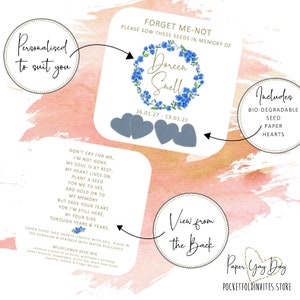 Personalised
to suit you
FORGET ME-NOT
PLEASE SOW THESE SEEDS IN MEMORY OF
Doreen
Snell
26.01.27 - 13.01.21
Includes
BIO-DEGRADABLE
SEED
PAPER
HEARTS
DON'T CRY FOR ME,
I'M NOT GONE,
MY SOUL IS AT REST,
MY HEART LIVES ON,
PLANT A SEED
FOR ME TO SEE,
AND HOLD ON TO
MY MEMORY
BUT SAVE YOUR TEARS
FOR I'M STILL HERE,
BY YOUR SIDE
THROUGH YEARS & YEARS.
View from
the Back
WILDFLOWER SEED MIX
Paper Guy Day
POCKETFOLDINVITES.STORE